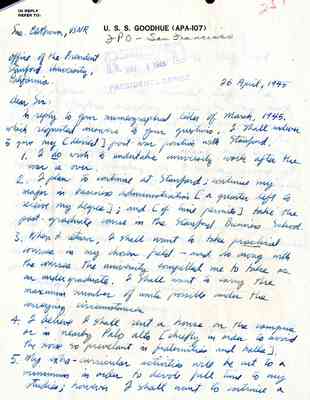 IN REPLY
REFER TO:
U. S. S. GOODHUE (APA-107)
FPO - San Francisco
USNR
Office of the President
Stanford University,
California.
PRESIDENT'S OFFICE
26 April, 1945
Dear Sir:
In reply to your mimeographed letter of March, 1945,
which requested answers to your questions, I shall
give my [desired] post war position with Stanford.
1. I do wish to undertake university work after the
war is over.
2. I plan to continue at Stanford; continue my
major in Business Administration [a quarter left to
receive my degree]; and [if time permits] take the
post-graduate course in the Stanford Business School.
3. When I return, I shall want to take practical
courses in my chosen field - and do away with
the courses the university compelled me to take as
an undergraduate. I shall want to carry the
maximum number of units possible under the
circumstances.
4. I believe I shall rent a house on the campus
or in nearby Palo Alto [chiefly in order to avoid
the noise so prevalent in fraternities and halls].
5. My extra-curricular activities will be cut to a
minimum in order to devote full time to my
studies; however I shall want to continue a